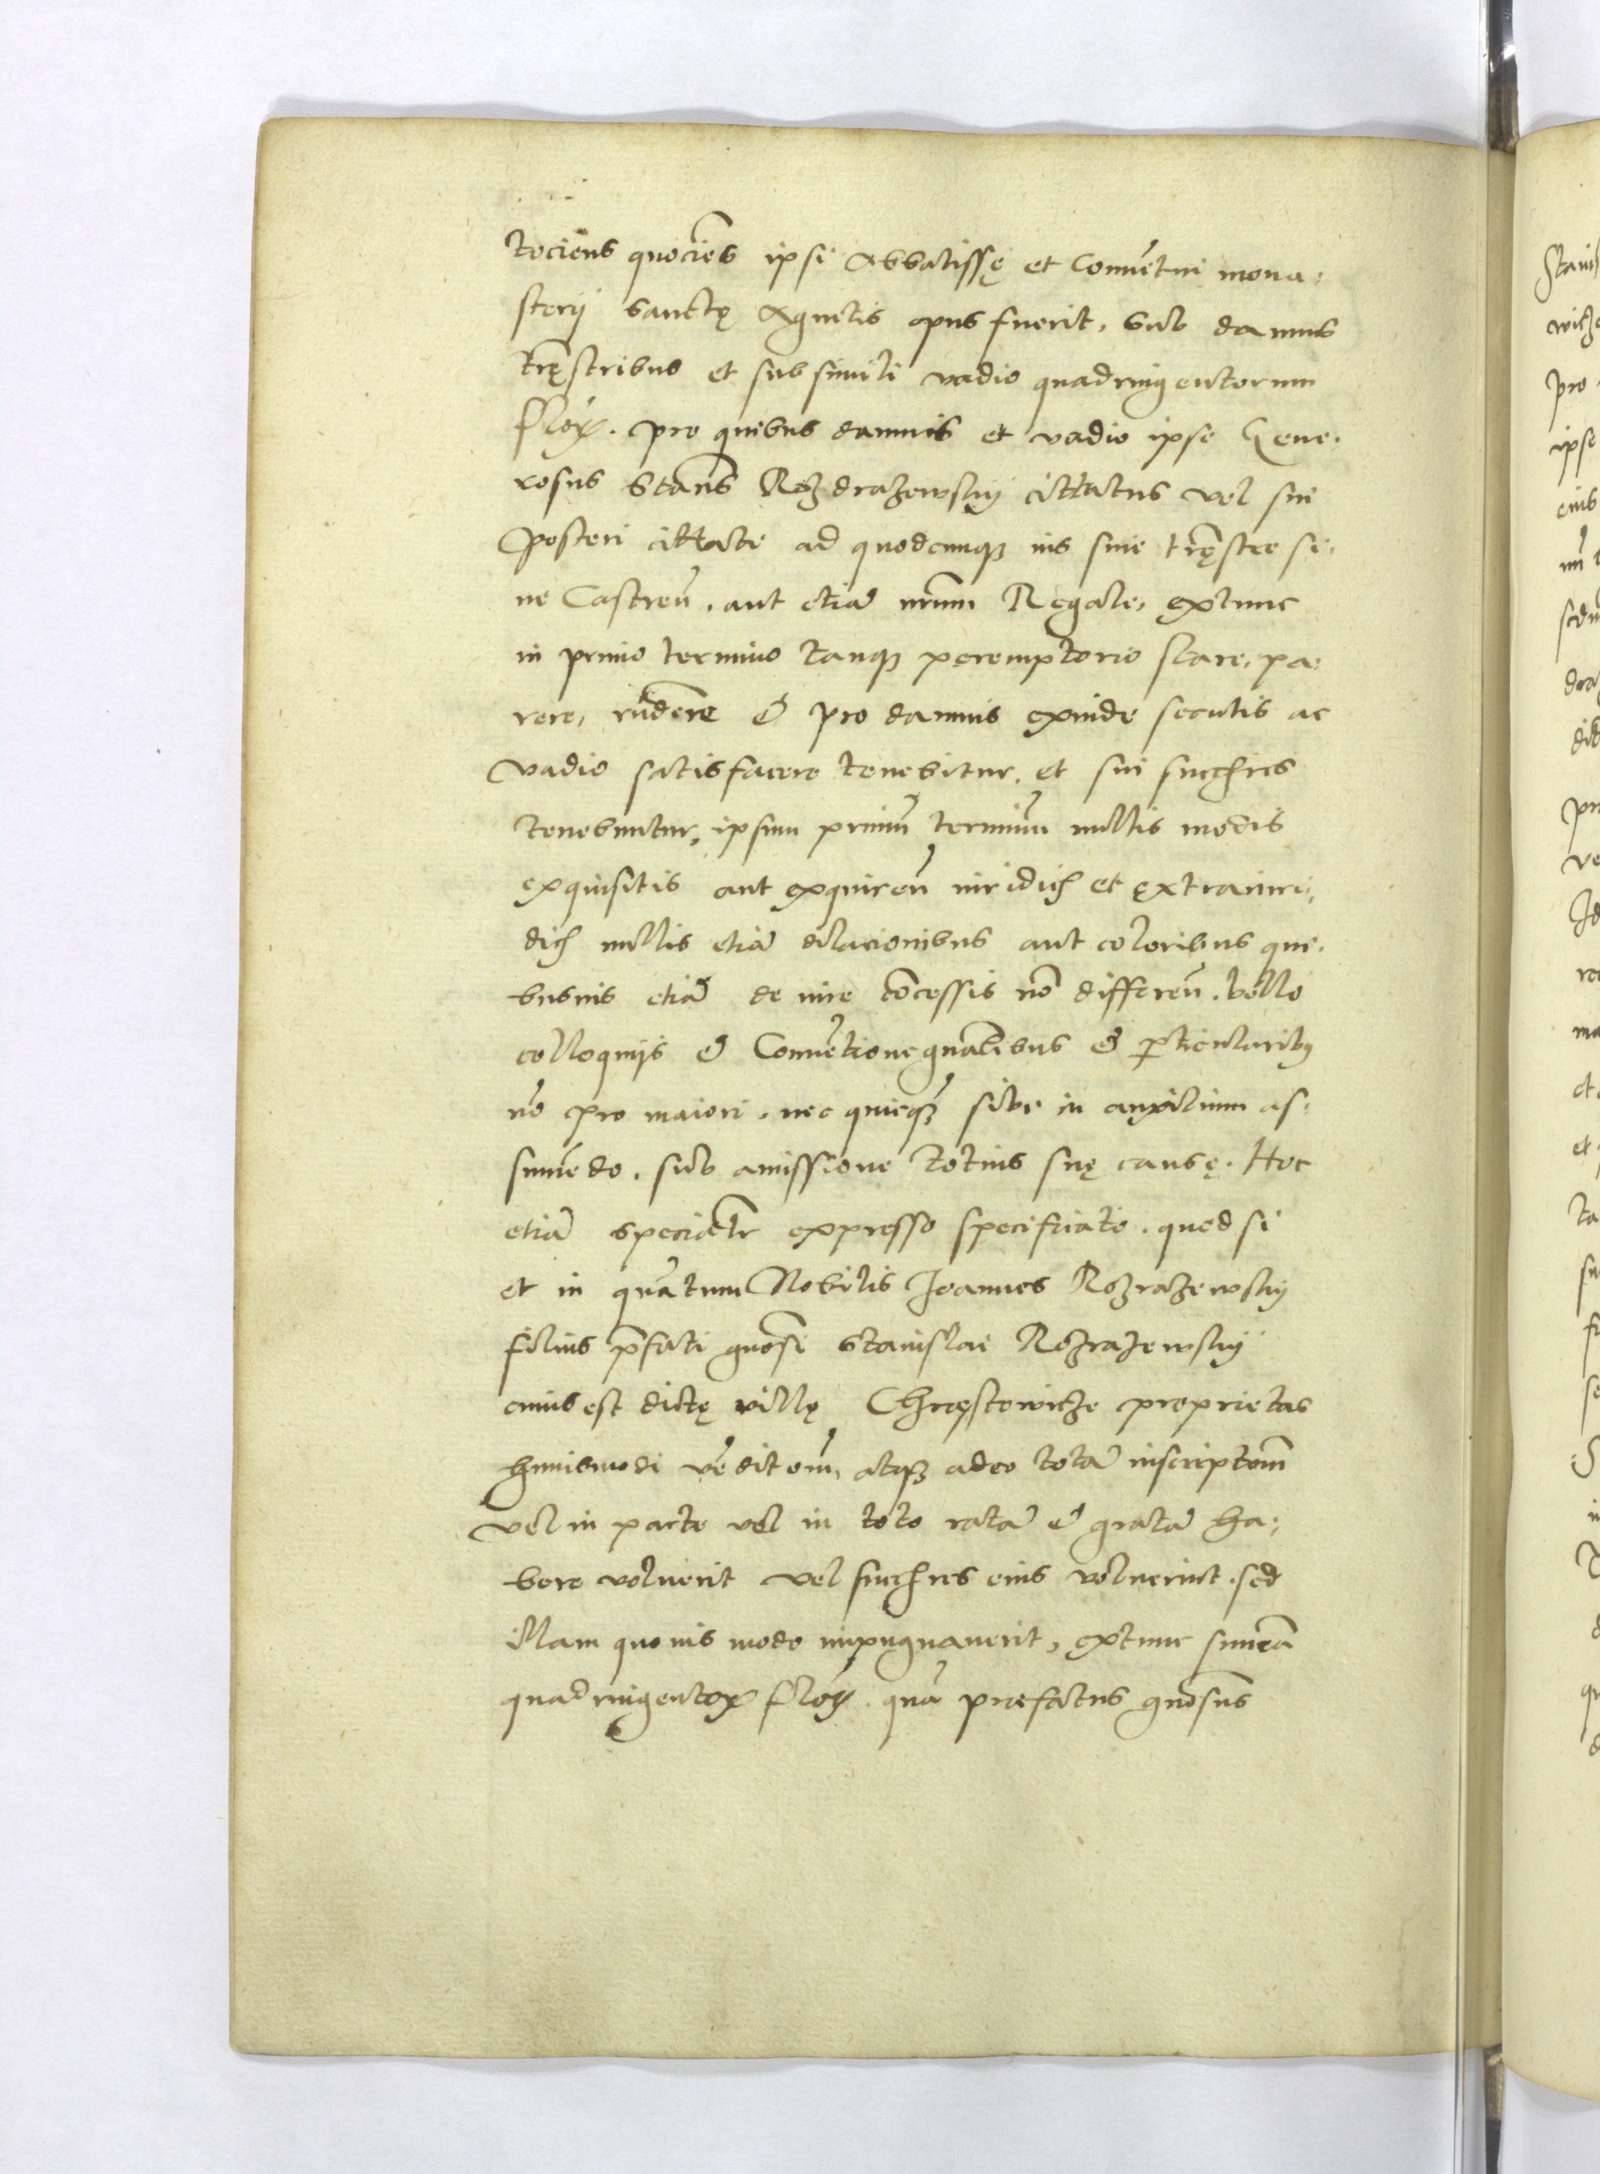 tociens quocies ipsi Abbatissę et Conventui mona,
sterij Sanctę Agnetis opus fuerit, Sub damnis
tręstribus et sub simili vadio quadringentorum
flor. pro quibus damnis et vadio ipse Gene,
rosus Stans Rozdrazewsky cittatus vel sui
Posteri cittate ad quodcunque ius sive tręstre si,
ve Castren, aut etia nrum Regale, extunc
in primo termino tanque peremptorio stare, pa,
rere, rndere & pro damnis exinde secutis ac
vadio satisfacere tenebitur, et sui succhres
tenebuntur, ipsum primu terminu nullis modis
exquisitis aut exquiren iuridich et extraiuri,
dich nullis etia dilacionibus aut coloribus qui,
busvis etia de iure concessis no differen. bello
colloquijs & Conventione gnalibus & particularibus
no pro maiori, nec quicque sibi in auxilium as,
sumendo, sub amissione totius suę causę. Hoc
etia specialtr expresso specificato. quod si
et in quantum Nobilis Joannes Rozrazewsky
filius pfati gnosi Stanislai Rozrazewsky
cuius est dictę villę Chręstowicze proprietas
huiusmodi venditom, atque adeo tota inscriptom
vel in parte vel in toto rata & grata ha,
bere voluerit vel succhres eius voluerint. sed
illam quovis modo impugnaverit, extunc summa
quadringentor flor. qua prefatus gnosus